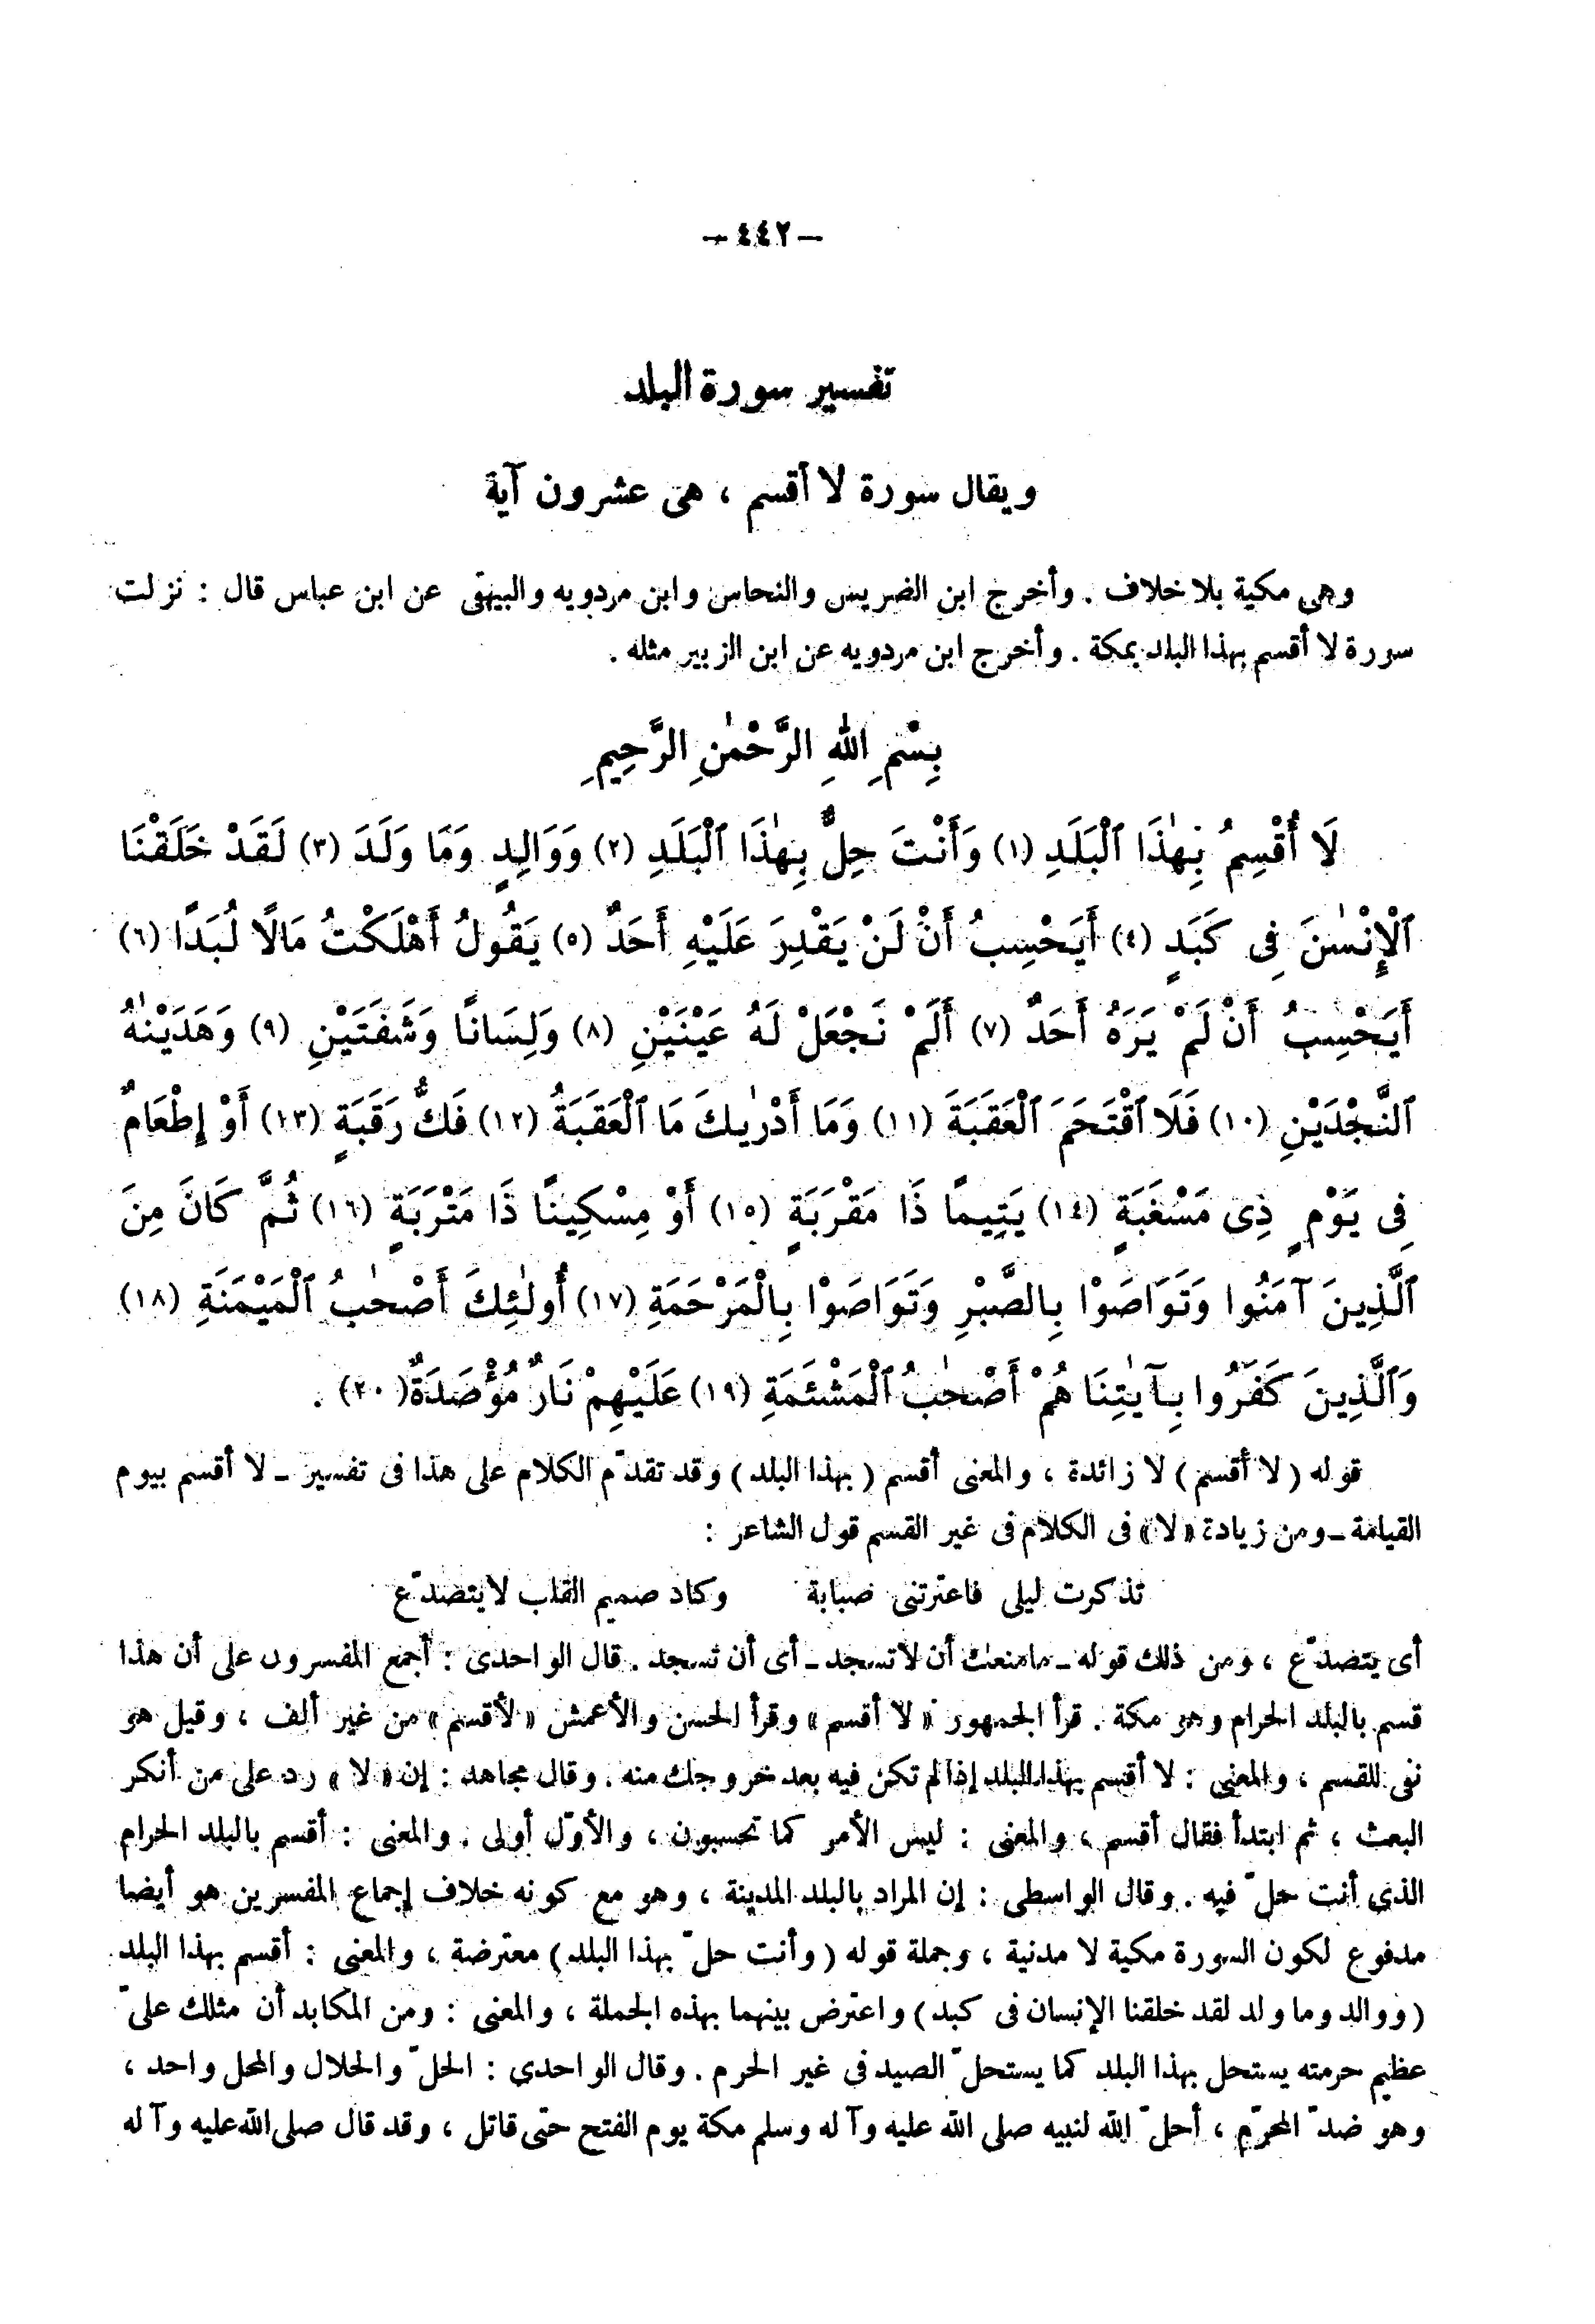 — ٤٤٢ —
تفسير سورة البلد
ويقال سورة لا أقسم ، هى عشرون آية
وهى مكية بلا خلاف . وأخرج ابن الضريس والنحاس وابن مردويه والبيهقى عن ابن عباس قال : نزلت
سورة لا أقسم بهذا البلد بمكة . وأخرج ابن مردويه عن ابن الزبير مثله .
بِسْمِ اللهِ الرَّحْمٰنِ الرَّحِيمِ
لَا أُقْسِمُ بِهٰذَا ٱلْبَلَدِ (١) وَأَنْتَ حِلٌّ بِهٰذَا ٱلْبَلَدِ (٢) وَوَالِدٍ وَمَا وَلَدَ (٣) لَقَدْ خَلَقْنَا
ٱلْإِنْسٰنَ فِى كَبَدٍ (٤) أَيَحْسِبُ أَنْ لَنْ يَقْدِرَ عَلَيْهِ أَحَدٌ (٥) يَقُولُ أَهْلَكْتُ مَالًا لُبَدًا (٦)
أَيَحْسِبُ أَنْ لَمْ يَرَهُ أَحَدٌ (٧) أَلَمْ نَجْعَلْ لَهُ عَيْنَيْنِ (٨) وَلِسَانًا وَشَفَتَيْنِ (٩) وَهَدَيْنٰهُ
ٱلنَّجْدَيْنِ (١٠) فَلَا ٱقْتَحَمَ ٱلْعَقَبَةَ (١١) وَمَا أَدْرٰيكَ مَا ٱلْعَقَبَةُ (١٢) فَكُّ رَقَبَةٍ (١٣) أَوْ إِطْعَامٌ
فِى يَوْمٍ ذِى مَسْغَبَةٍ (١٤) يَتِيمًا ذَا مَقْرَبَةٍ (١٥) أَوْ مِسْكِينًا ذَا مَتْرَبَةٍ (١٦) ثُمَّ كَانَ مِنَ
ٱلَّذِينَ آمَنُوا وَتَوَاصَوْا بِالصَّبْرِ وَتَوَاصَوْا بِالْمَرْحَمَةِ (١٧) أُولٰئِكَ أَصْحٰبُ ٱلْمَيْمَنَةِ (١٨)
وَٱلَّذِينَ كَفَرُوا بِآيٰتِنَا هُمْ أَصْحٰبُ ٱلْمَشْئَمَةِ (١٩) عَلَيْهِمْ نَارٌ مُؤْصَدَةٌ (٢٠) .
قوله ( لا أقسم ) لا زائدة ، والمعنى أقسم ( بهذا البلد ) وقد تقدّم الكلام على هذا فى تفسير ـ لا أقسم بيوم
القيامة ـ ومن زيادة « لا » فى الكلام فى غير القسم قول الشاعر :
تذكرت ليلى فاعترتنى صبابة وكاد صميم القلب لا يتصدّع
أى يتصدّع ، ومن ذلك قوله ـ مامنعك أن لاتسجد ـ أى أن تسجد . قال الواحدى : أجمع المفسرون على أن هذا
قسم بالبلد الحرام وهو مكة . قرأ الجمهور « لا أقسم » وقرأ الحسن والأعمش « لأقسم » من غير ألف ، وقيل هو
نفى للقسم ، والمعنى : لا أقسم بهذا البلد إذا لم تكن فيه بعد خروجك منه . وقال مجاهد : إن « لا » رد على من أنكر
البعث ، ثم ابتدأ فقال أقسم ، والمعنى : ليس الأمر كما تحسبون ، والأوّل أولى . والمعنى : أقسم بالبلد الحرام
الذى أنت حلّ فيه . وقال الواسطى : إن المراد بالبلد المدينة ، وهو مع كونه خلاف إجماع المفسرين هو أيضا
مدفوع لكون السورة مكية لا مدنية ، وجملة قوله ( وأنت حلّ بهذا البلد ) معترضة ، والمعنى : أقسم بهذا البلد
( ووالد وما ولد لقد خلقنا الإنسان فى كبد ) واعترض بينهما بهذه الجملة ، والمعنى : ومن المكابد أن مثلك علىّ
عظيم حرمته يستحل بهذا البلد كما يستحلّ الصيد فى غير الحرم . وقال الواحدى : الحلّ والحلال والمحل واحد ،
وهو ضدّ المحرّم ، أحلّ الله لنبيه صلى الله عليه وآله وسلم مكة يوم الفتح حتى قاتل ، وقد قال صلى الله عليه وآله